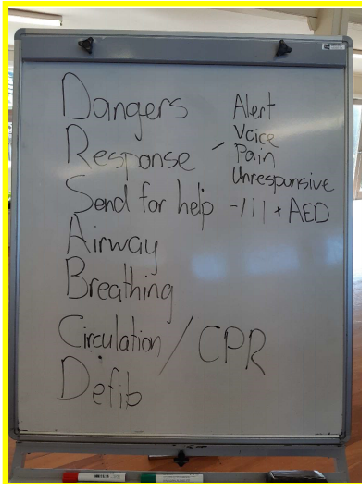 Dangers
Response - Alert
Voice
Pain
Unresponsive
Send for help - 111 + AED
Airway
Breathing
Circulation / CPR
Defib